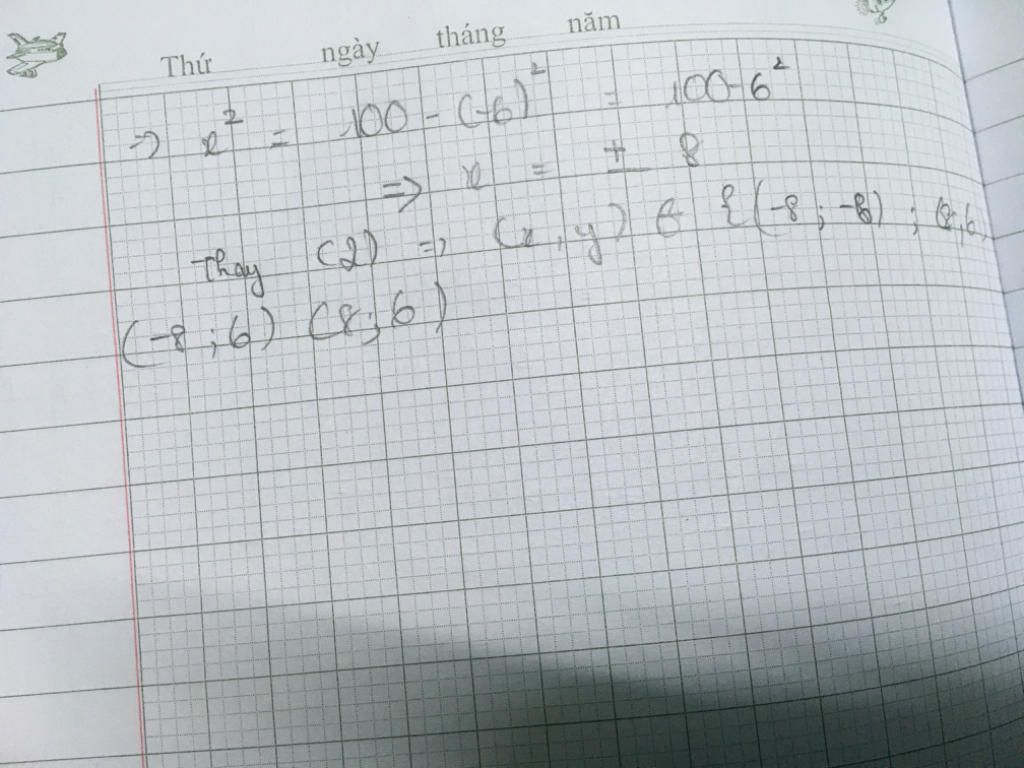 Thứ ngày tháng năm
=> x² = 100 - (-6)² = 100-6²
=> x = ± 8
Thay (2) => (x, y) ∈ {(-8 ; -6) ; (8;6
(-8 ; 6) (8; 6)